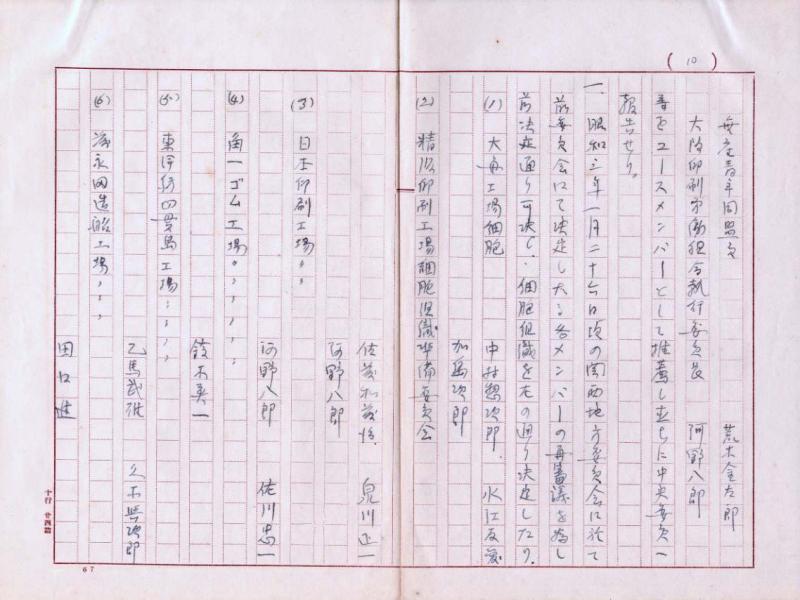 (10)
無産青年同盟員 荒木金太郎
大阪印刷労働組合執行委員長 阿野八郎
等をユースメンバーとして推薦し直ちに中央委員へ
報告せり。
一、昭和三年一月二十六日頃の関西地方委員会に於て
前委員会にて決定したる各メンバーの再審議を為し
前決定通り可決し、細胞組織を左の通り決定したり。
(1) 大毎工場細胞 中村 次郎 水江
加島次郎
(2) 精版印刷工場細胞組織準備委員会
佐 和 泉川正一
阿野八郎
(3) 日本印刷工場 〃 〃
(4) 角一ゴム工場 〃 〃 〃 〃 〃
阿野八郎 佐川忠一
鈴木英一
(5) 東洋紡四貫島工場 〃 〃 〃 〃
乙馬武 久木 次郎
(6) 永田造船工場 〃 〃 〃
田口進
十行 廿四詰
67